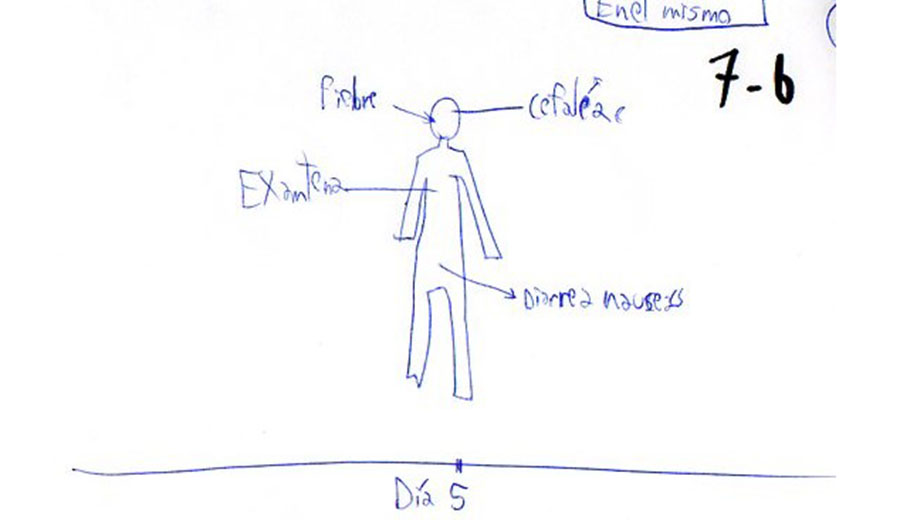 Enel mismo
7-6
fiebre
cefaléas
Exantema
Diarrea nauseas
Día 5